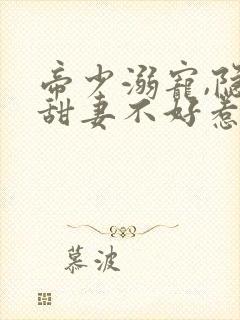 帝少溺寵,隐
甜妻不好惹
慕波